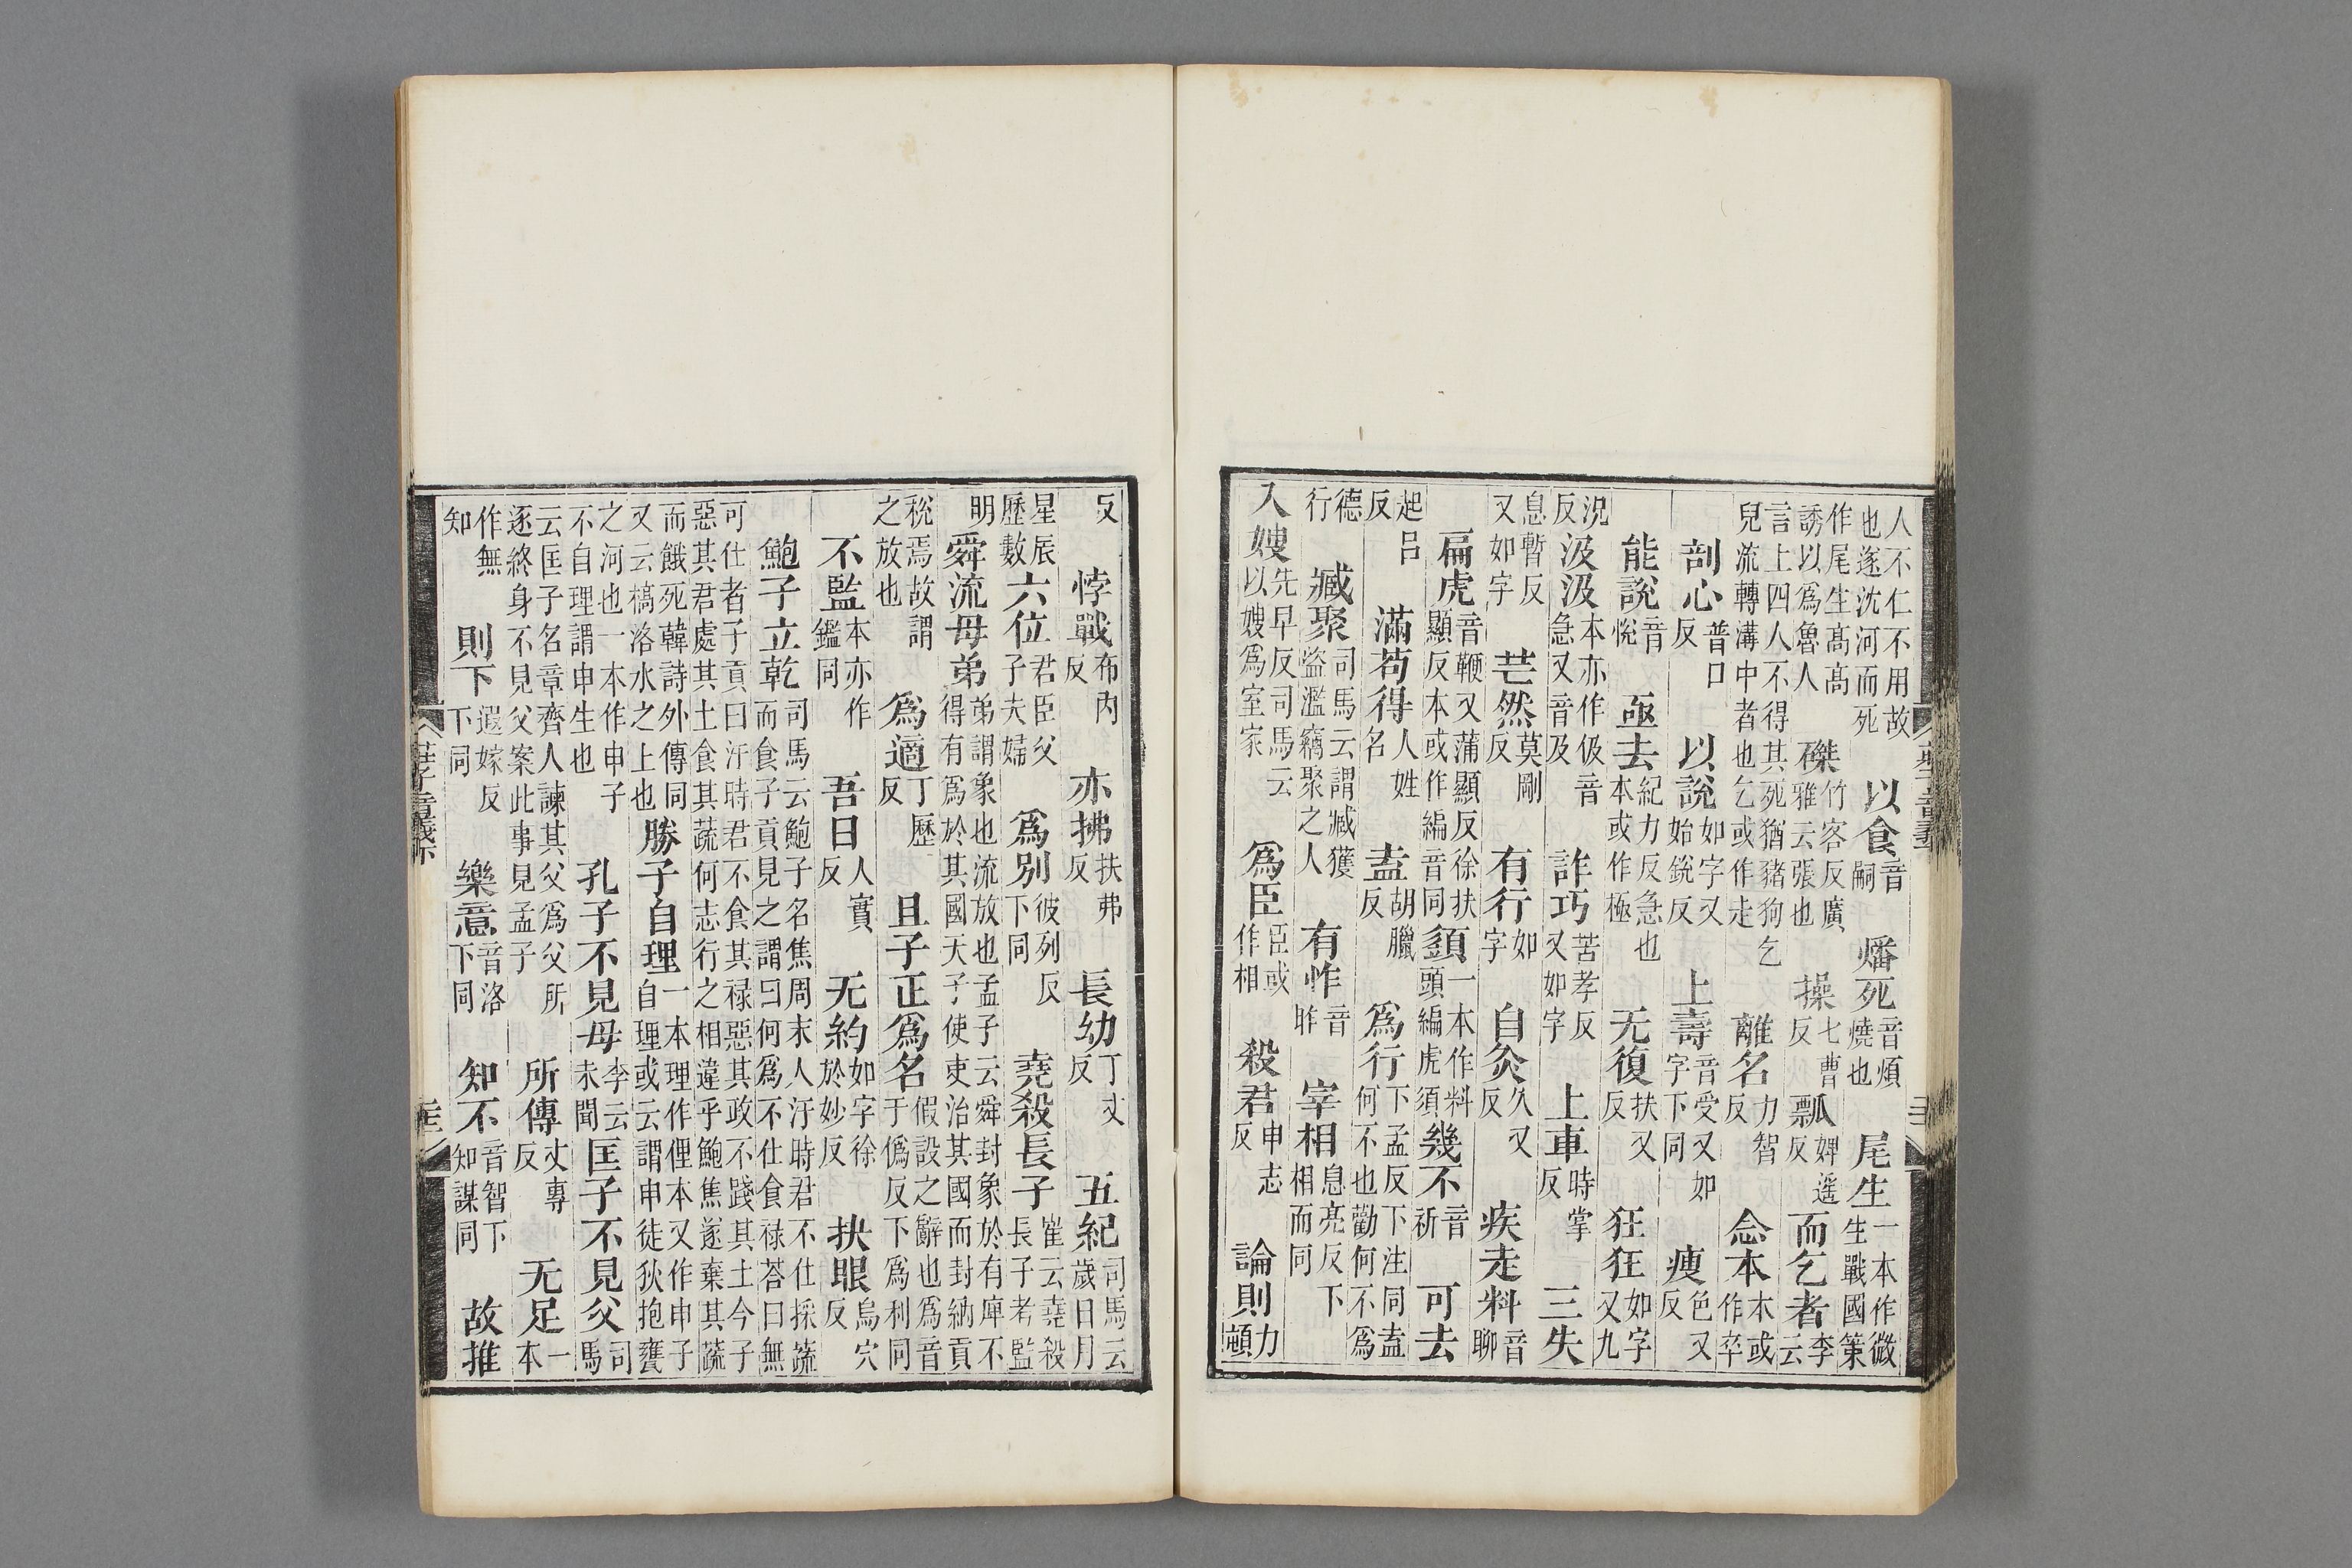 人不仁不用故也遂沈河而死 以食音嗣 燔死音煩燒也 尾生一本作微生戰國策
作尾生髙髙誘以爲魯人 磔竹客反廣雅云張也 操七曹反 瓢婢遥反 而乞者李云
言上四人不得其死猶豬狗乞兒流轉溝中者也乞或作走 離名力智反 念本本或作卒
剖心普口反 以說如字又始銳反 上壽音受又如字下同 瘦色又反
能說音悅 亟去紀力反急也本或作極 无復扶又反 狂狂如字又九
況反 汲汲本亦作伋音急又音及 詐巧苦孝反又如字 上車時掌反 三失
息暫反又如字 芒然莫剛反 有行如字 自灸久又反 疾走料音聊
扁虎音鞭又蒲顯反徐扶顯反本或作編音同 須一本作料頭編虎須 幾不音祈 可去
起呂反 滿苟得人姓名 盍胡臘反 爲行下孟反下注同盍何不也勸何不爲
德行 臧聚司馬云謂臧獲盜濫竊聚之人 有怍音昨 宰相息亮反下相而同
入嫂先早反司馬云以嫂爲室家 爲臣臣或作相 殺君申志反 論則力頓
反 悖戰布內反 亦拂扶弗反 長幼丁丈反 五紀司馬云歲日月
星辰歷數 六位君臣父子夫婦 爲別彼列反下同 堯殺長子崔云堯殺長子考監
明 舜流母弟弟謂象也流放也孟子云舜封象於有庳不得有爲於其國天子使吏治其國而封納貢
稅焉故謂之放也 爲適丁歷反 且子正爲名假設之辭也爲音于僞反下爲利同
不監本亦作鑑同 吾日人實反 无約如字徐於妙反 抉眼烏穴反
鮑子立乾司馬云鮑子名焦周末人汙時君不仕採蔬而食子貢見之謂曰何爲不仕食禄荅曰無
可仕者子貢曰汙時君不食其禄惡其政不踐其土今子惡其君處其土食其蔬何志行之相違乎鮑焦遂棄其蔬
而餓死韓詩外傳同又云槁洛水之上也 勝子自理一本理作俚本又作申子自理或云謂申徒狄抱甕
之河也一本作申子不自理謂申生也 孔子不見母李云未聞 匡子不見父司馬
云匡子名章齊人諫其父爲父所逐終身不見父案此事見孟子 所傳丈專反 无足一本
作無知 則下遐嫁反下同 樂意音洛下同 知不音智下知謀同 故推